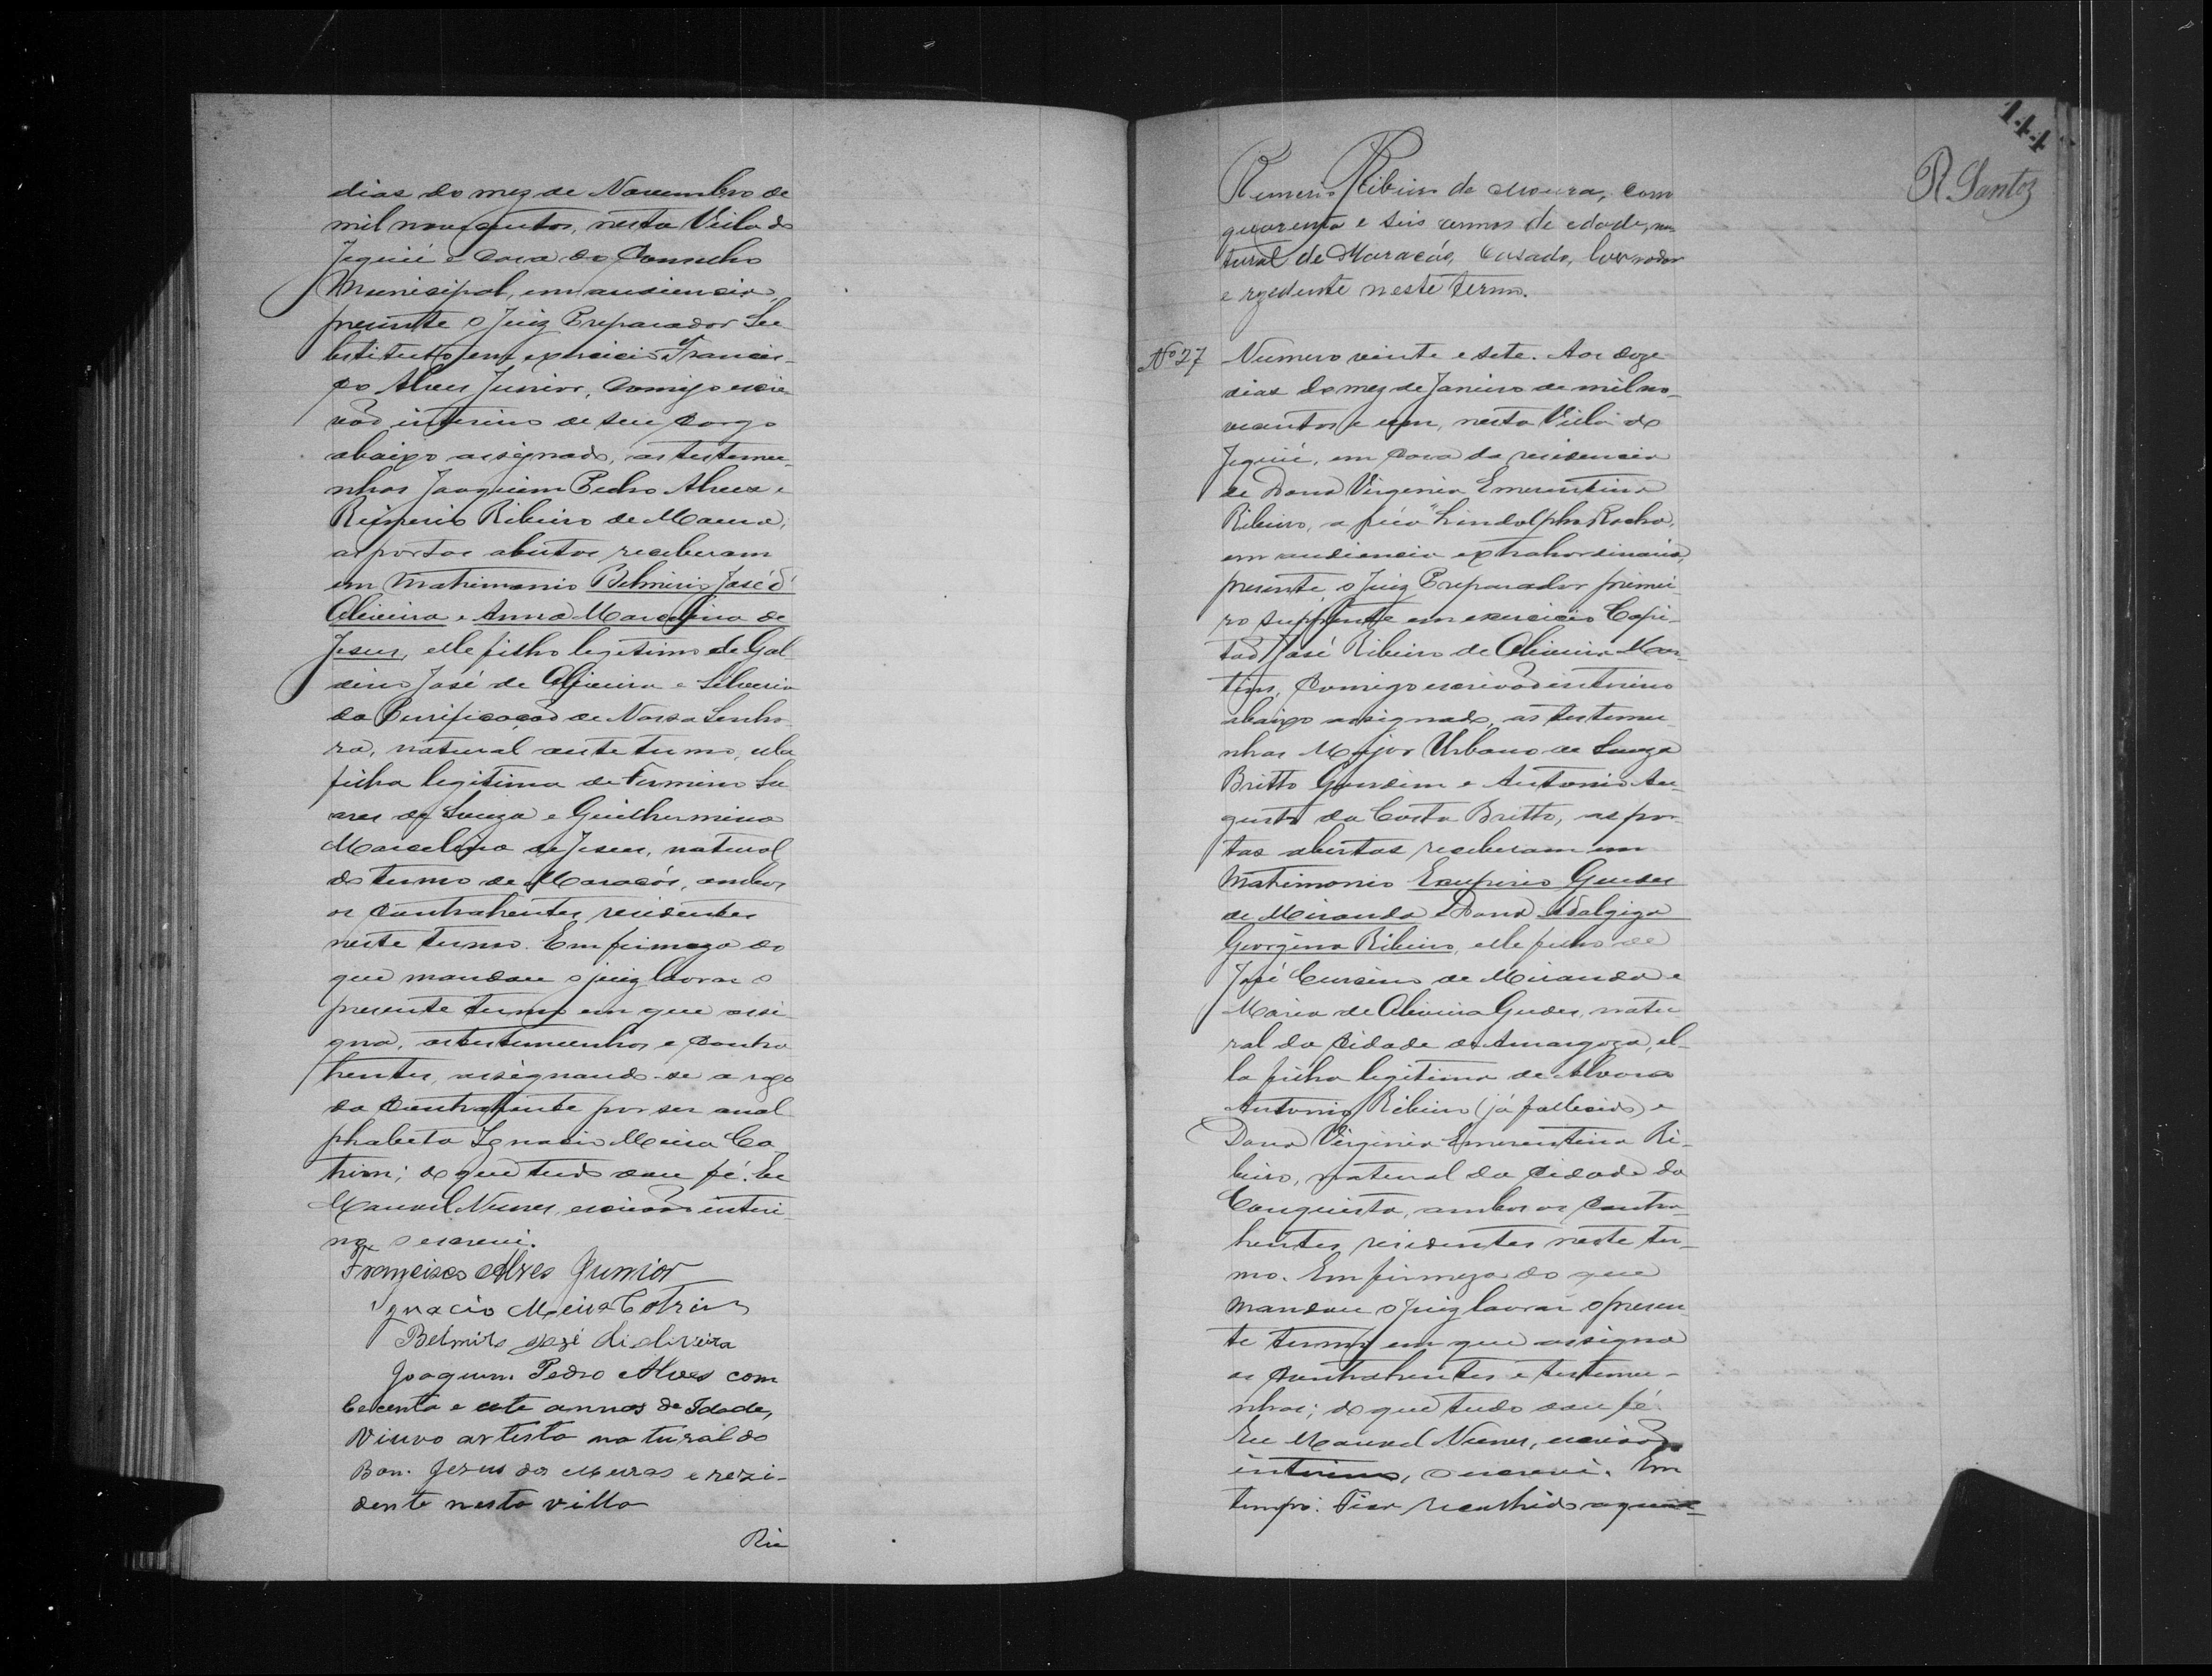 dias do mez de Novembro de
mil novecentos, nesta Villa de
Jequié e Casa do Conselho
Municipal, em audiencia,
presente o Juiz Preparador Su
bstituto em exercicio Francis-
co Alves Junior, comigo escri-
vão interino de seu cargo
abaixo assignado, as testemu-
nhas Joaquim Pedro Alves e
Rimerio Ribeiro de Moura,
as portas abertas receberam
em matrimonio Belmiro José d'
Oliveira e Anna Marcelina de
Jesus, elle filho legitimo de Gal
dino José de Oliveira e Silveria
da Purificação de Nossa Senho
ra, natural deste termo, ella
filha legitima de Firmino Su
ares de Souza e Guilhermina
Marcelina de Jesus, natural
do termo de Maracás, ambos
os contrahentes residentes
neste termo. Em firmeza do
que mandou o juiz lavrar o
presente termo em que assi
gna, as testemunhas e contra
hentes, assignando-se a rogo
da contrahente por ser anal
phabeta Ignacio Meira Co
trim; do que tudo dou fé. Eu
Manoel Nunes, escrivão interi
no, o escrevi.
Francisco Alves Junior
Ignacio Meira Cotrim
Belmiro José di oliveira
Joaquim Pedro Alves com
Cecenta e cete annos de Idade,
Viuvo artista natural do
Bom Jezus dos Meiras e rezi-
dente nesta villa
Rie
144
R. Santos
Rumerio Ribeiro de Moura, com
quarenta e seis annos de edade, na
tural de Maracás, Casado, lavrador
e rezedente neste termo.
Nº 27 Numero vinte e sete. Aos doze
dias do mez de Janeiro de mil no-
vecentos e um, nesta Villa de
Jequié, em casa da residencia
de Dona Virginia Emerentina
Ribeiro, a rua "Lindolpho Rocha,
em audiencia extrahordinaria,
presente o Juiz Preparador primei
ro supplente em exercicio Capi-
tão José Ribeiro de Oliveira Mar-
tins, comigo escrivão interino
abaixo assignado, as testemu
nhas Major Urbano de Souza
Britto Gondim e Antonio Au-
gusto da Costa Britto, as por
tas abertas receberam em
matrimonio Guedes
de Miranda e Dona Adalgiza
Georgina Ribeiro, elle filho de
José Cursino de Miranda e
Maria de Oliveira Guedes, natu
ral da Cidade de Amargoza, el-
la filha legitima de Alvaro
Antonio Ribeiro (já fallecido) e
Dona Virginia Emerentina Ri-
beiro, natural da Cidade da
Conquista, ambos os contra-
hentes residentes neste ter-
mo. Em firmeza do que
mandou o juiz lavrar o presen
te termo em que assigna
os contrahentes e testemu-
nhas; do que tudo dou fé.
Eu Manoel Nunes, escrivão
interino, o escrevi. Em
tempo: Fica recolhido aquan-